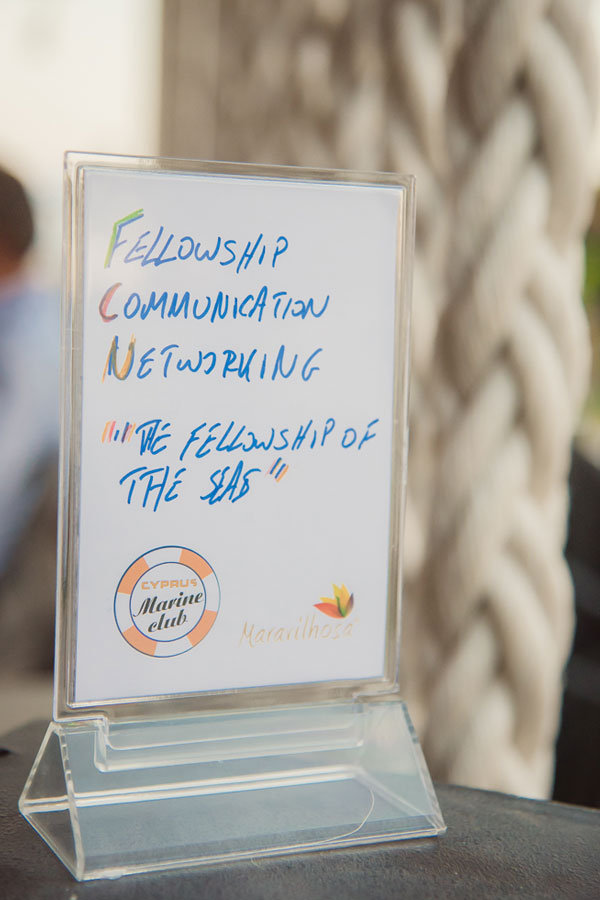 FELLOWSHIP
COMMUNICATION
NETWORKING
"THE FELLOWSHIP OF
THE SEAS"
CYPRUS
Marine
club
Maravilhosa